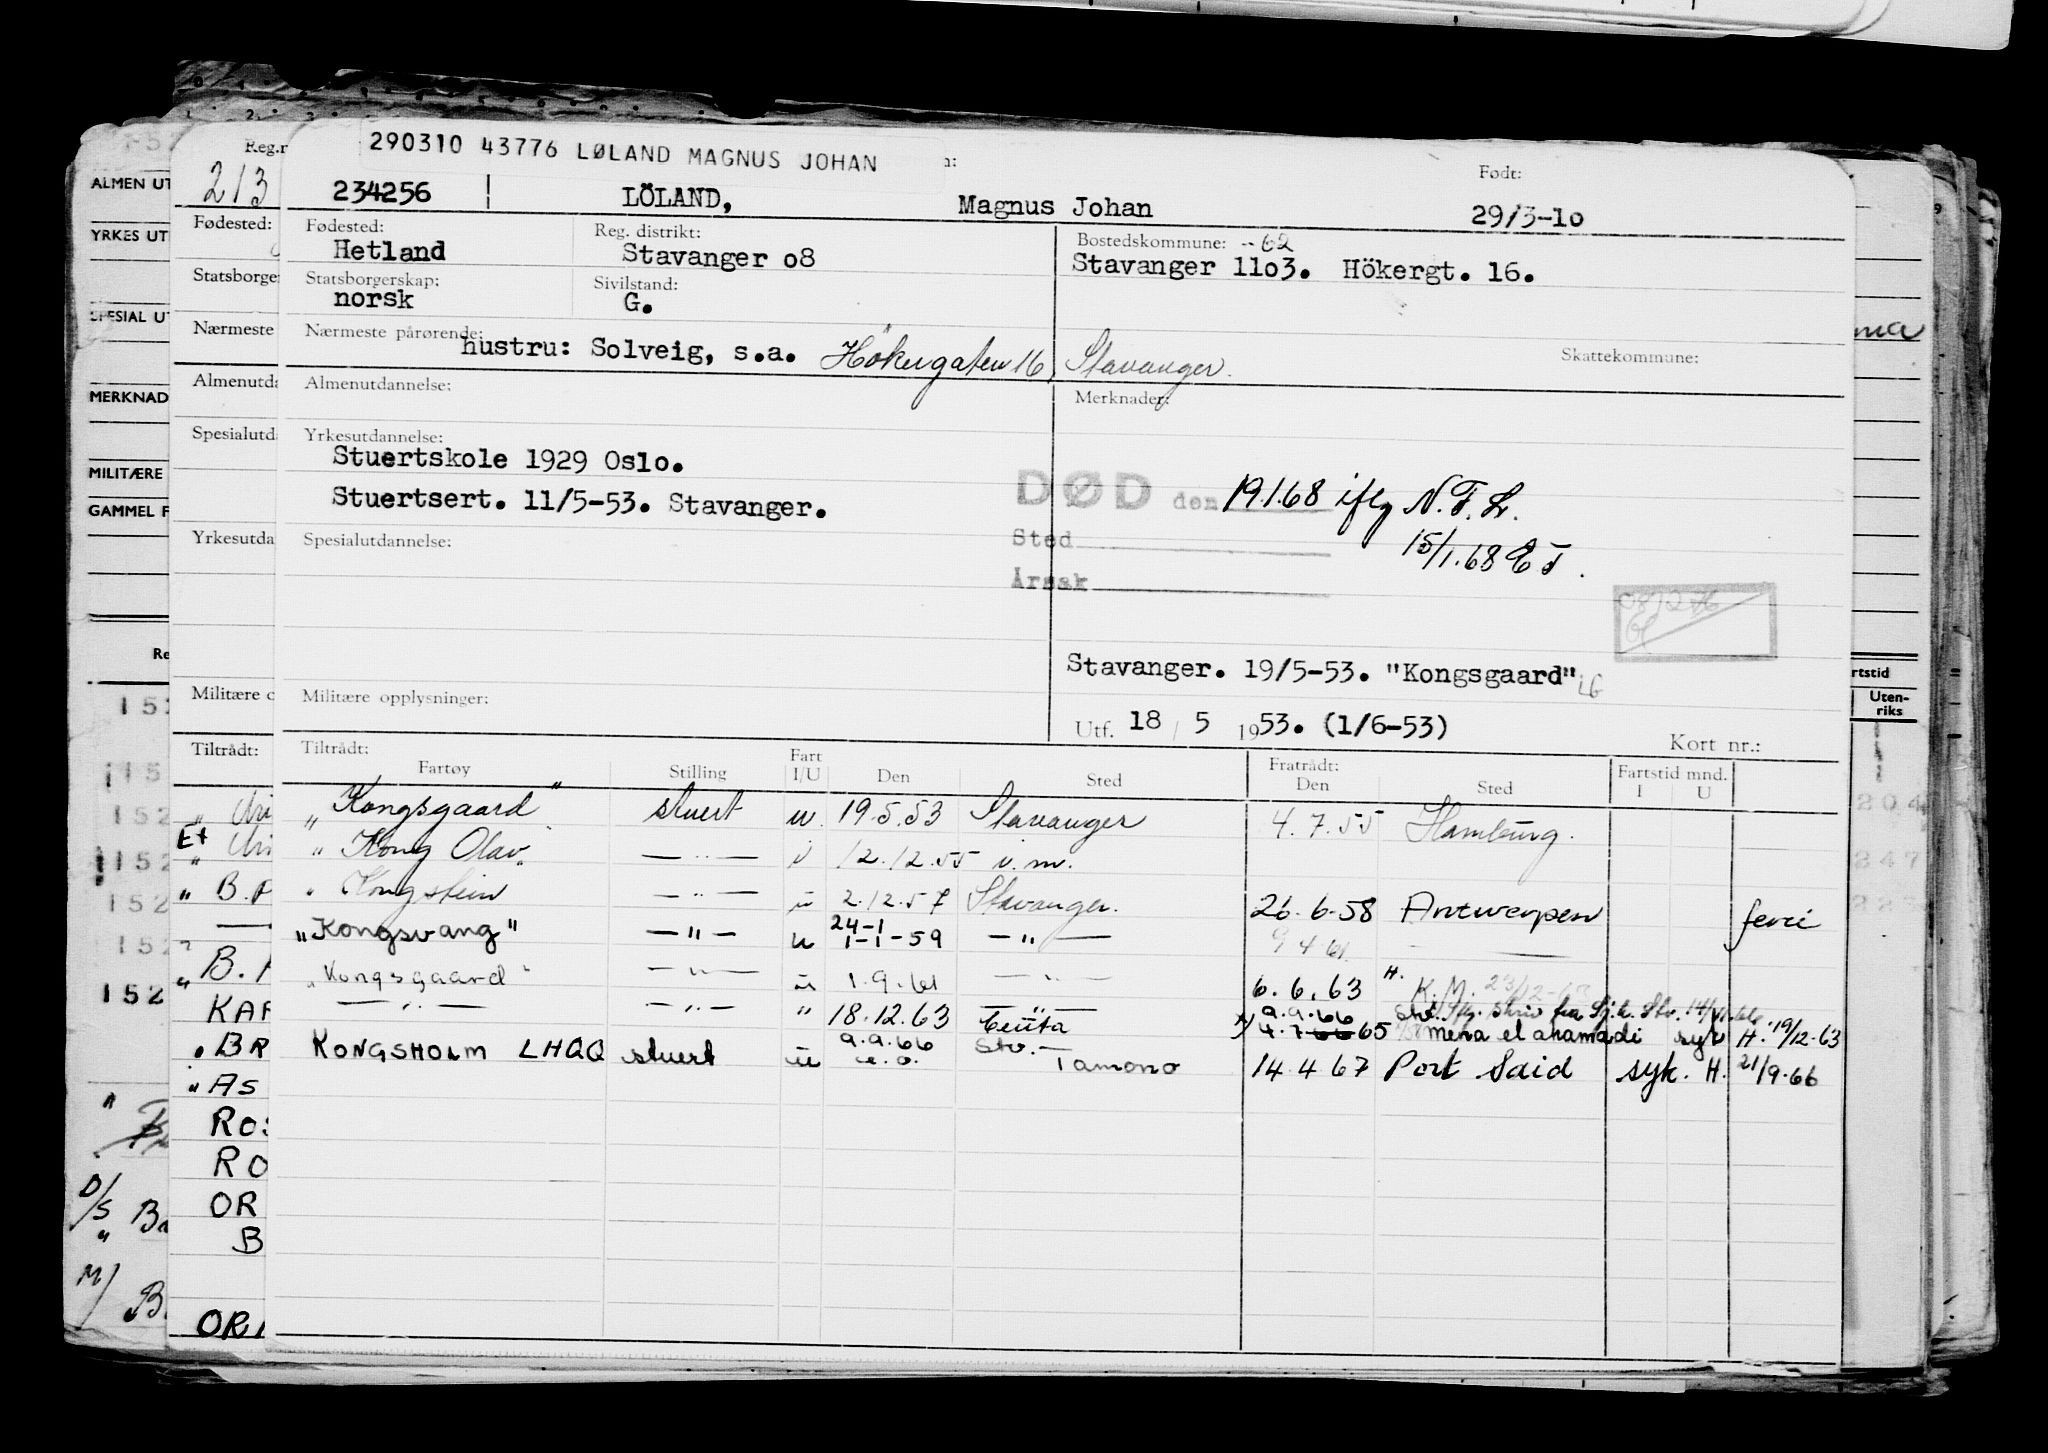 290310 43776 LØLAND MAGNUS JOHAN
Født:
234256 LÖLAND, Magnus Johan 29/3-1o
Fødested: Reg. distrikt: Bostedskommune: -62
Hetland Stavanger o8 Stavanger 11o3. Hökergt. 16.
Statsborgerskap: Sivilstand:
norsk G.
Nærmeste pårørende: Skattekommune:
hustru: Solveig, s.a. Hökergaten 16, Stavanger.
Almenutdannelse: Merknader:
Yrkesutdannelse:
Stuertskole 1929 Oslo.
Stuertsert. 11/5-53. Stavanger.
DØD den 19.1.68 iflg N.F.L.
Sted 15/1.68 E J.
Årsak
Spesialutdannelse:
Stavanger. 19/5-53. "Kongsgaard"
Militære opplysninger:
Utf. 18 / 5 1953. (1/6-53)
Kort nr.:
Tiltrådt: Fart Fratrådt: Fartstid mnd.
Fartøy Stilling I/U Den Sted Den Sted I U
"Kongsgaard" stuert u. 19.5.53 Stavanger 4.7.55 Hamburg.
"Kong Olav" — " — 12.12.55 u.m.
" Kongstein — " — u 2.12.57 Stavanger. 26.6.58 Antwerpen ferie
"Kongsvang" — " — u 24-1 1-1-59 — " — 9.4.61 —
"Kongsgaard" — " — u 1.9.61 — " — 6.6.63 H. K.M.
— " — — " — " 18.12.63 Ceuta 4.7.66 65 Mena el ahamadi syk H. 19/12.63
9.9.66
KONGSHOLM LHQQ stuert u 9.9.66 Stv. Tamono 14.4.67 Port Said syk. H. 21/9.66
213
Fødested:
Nærmeste
Tiltrådt:
ALMEN UT
YRKES UT
SPESIAL UT
MERKNAD
MILITÆRE
GAMMEL F
Uten-
riks